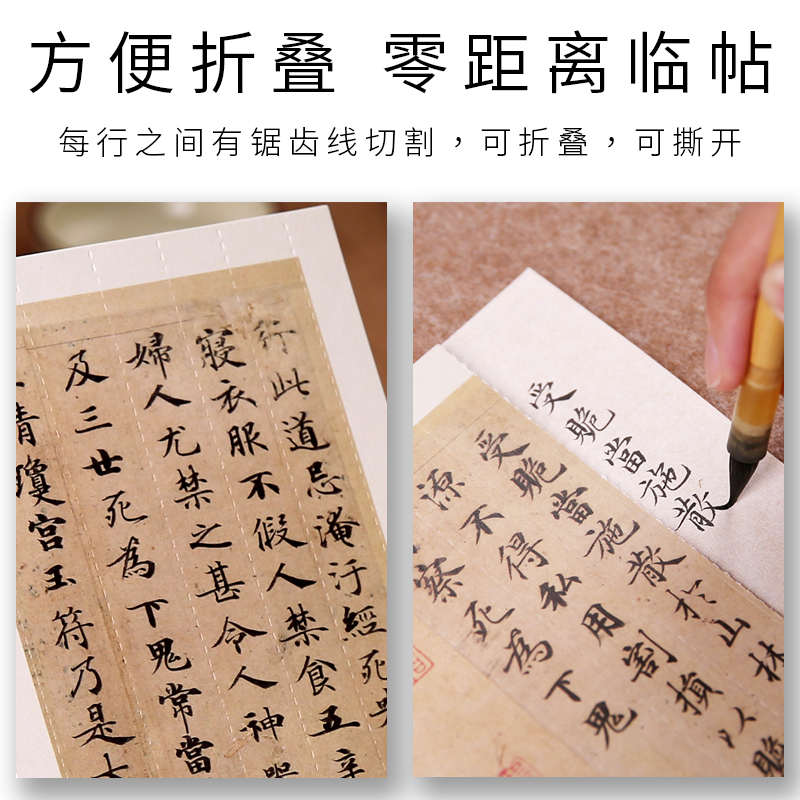 方便折叠 零距离临帖
每行之间有锯齿线切割，可折叠，可撕开
行此道忌淹汙經死
寢衣服不假人禁食五辛
婦人尤禁之甚令人神
及三世死為下鬼常當
清瓊宮玉符乃是
受當施散
受當施散於山林
不得私用割損以
察死為下鬼